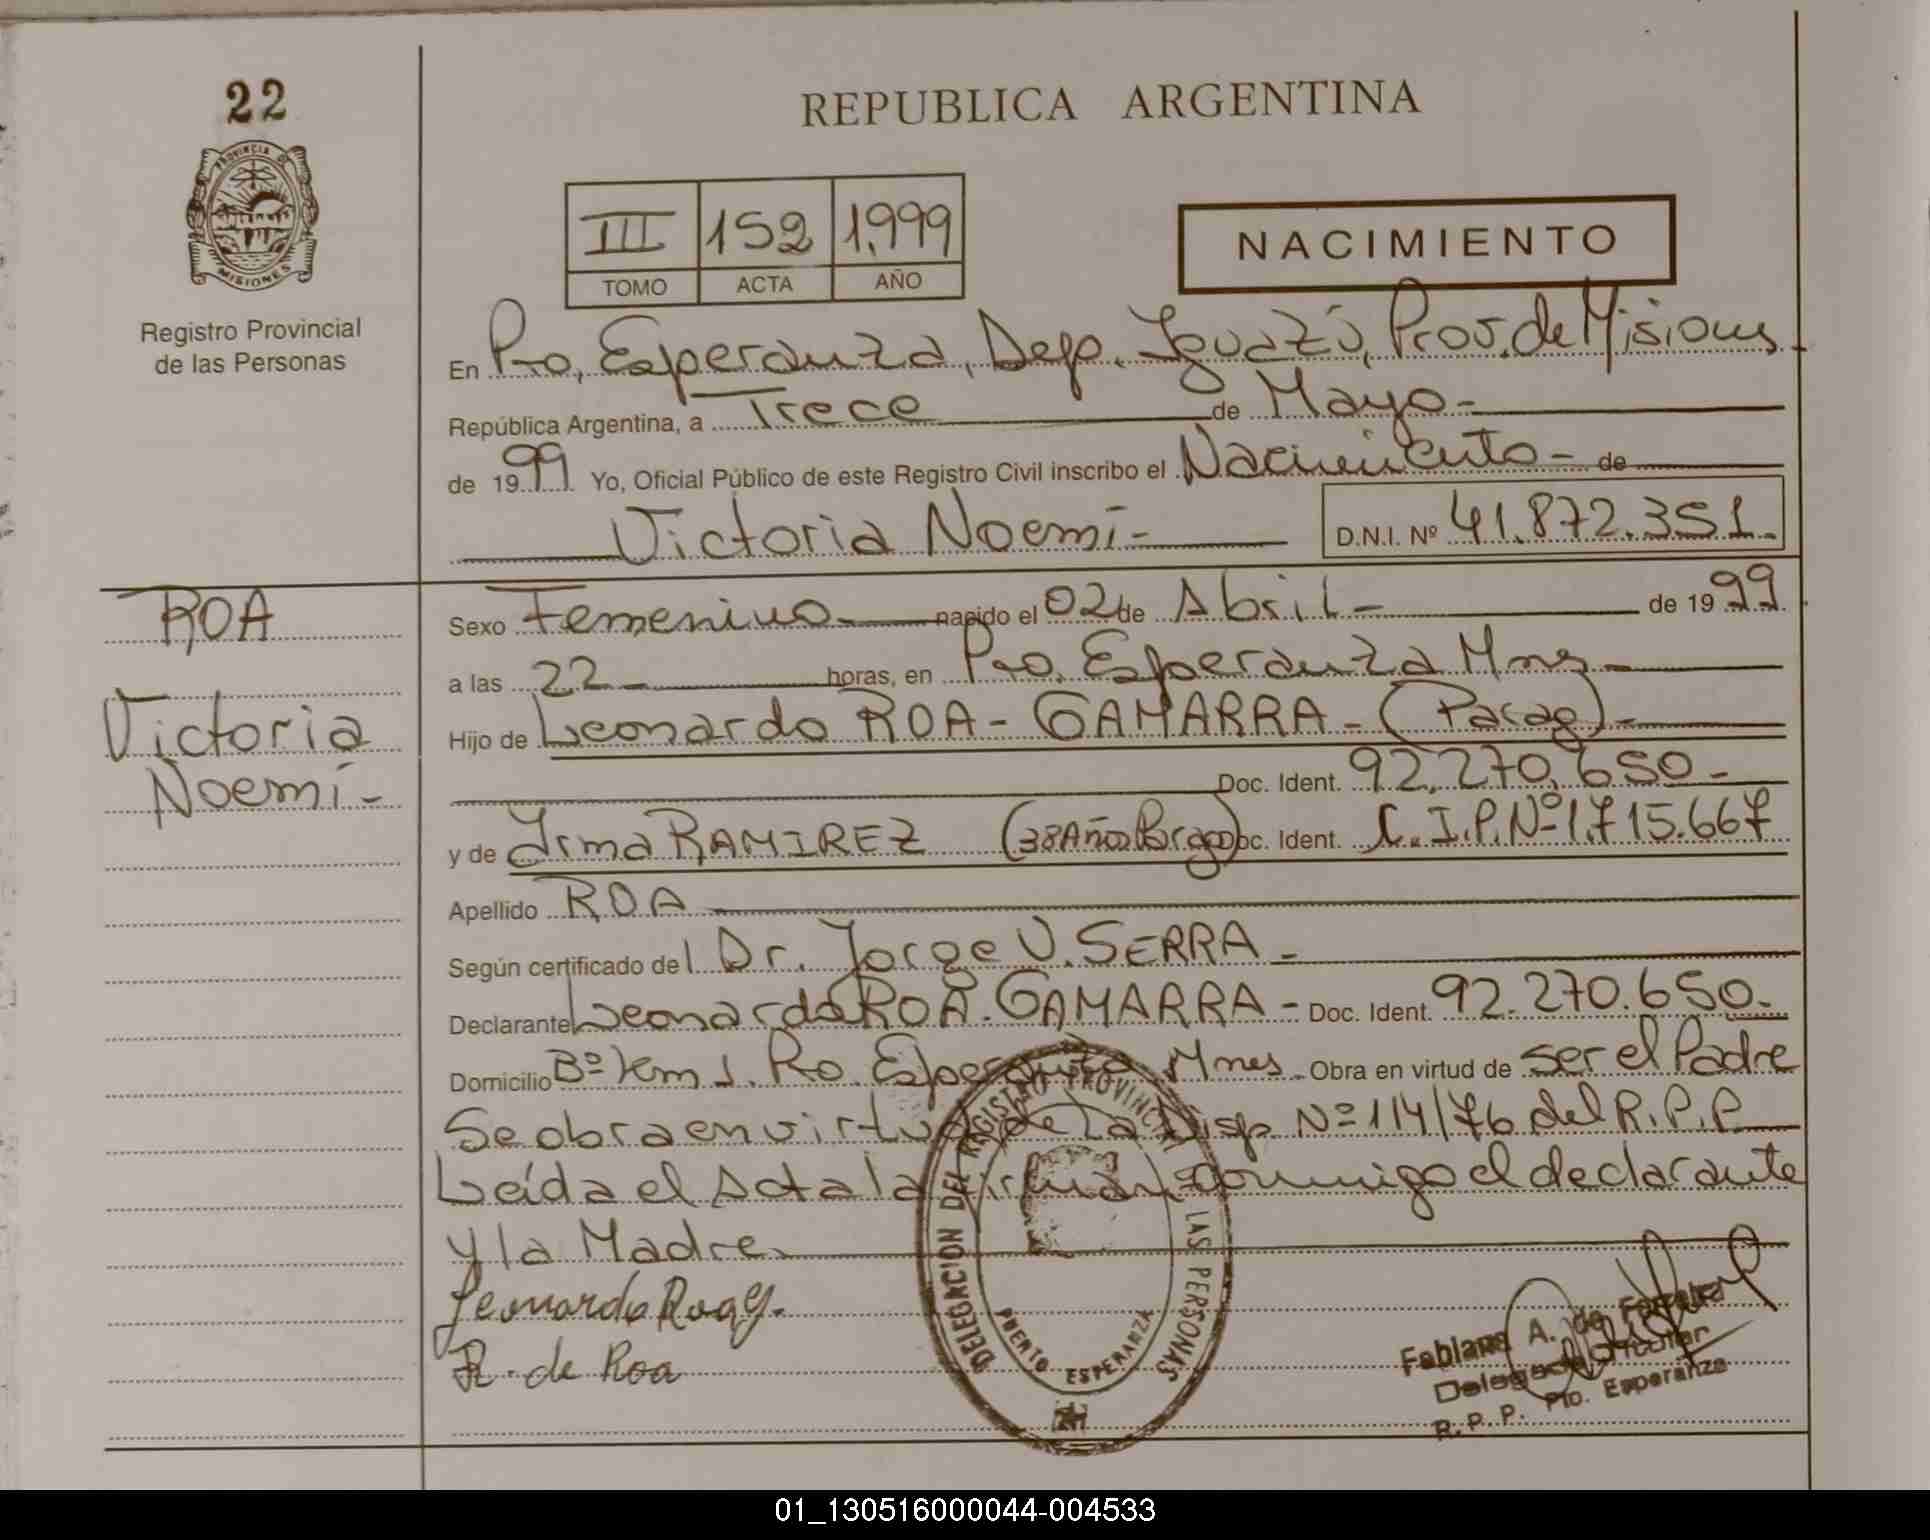 22
PROVINCIA DE
MISIONES
Registro Provincial
de las Personas
REPUBLICA ARGENTINA
III 152 1.999
TOMO ACTA AÑO
NACIMIENTO
En Pto. Esperanza, Dep. Iguazú, Prov. de Misiones
República Argentina, a Trece de Mayo-
de 1999 Yo, Oficial Público de este Registro Civil inscribo el Nacimiento - de
Victoria Noemí-
D.N.I. Nº 41.872.351-
ROA
Victoria
Noemí-
Sexo Femenino nacido el 02 de Abril- de 1999
a las 22- horas, en Pto. Esperanza Mnes-
Hijo de Leonardo ROA - GAMARRA - (Parag)-
Doc. Ident. 92.270.650-
y de Irma RAMIREZ (38 Años Parag) Doc. Ident. C.I.P.Nº 1.715.667
Apellido ROA
Según certificado del Dr. Jorge V. SERRA-
Declarante Leonardo ROA-GAMARRA- Doc. Ident. 92.270.650-
Domicilio Bº Km 1. Pto. Esperanza Mnes Obra en virtud de ser el Padre
Se obra en virtud de la Disp Nº 114/76 del R.P.P.
Leída el Acta la firman conmigo el declarante
y la Madre.
Leonardo Roa G.
R. de Roa
DELEGACION DEL REGISTRO PROVINCIAL LAS PERSONAS
PUERTO ESPERANZA
Fabiana A. de Ferreira
Delegada Titular
R. P. P. Pto. Esperanza
01_130516000044-004533